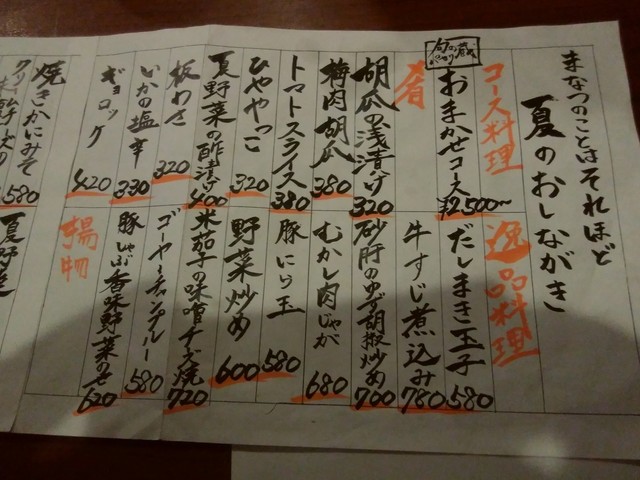 まなつのことはそれほど
夏のおしながき
コース料理
おまかせコース ¥2,500〜
肴
胡瓜の浅漬け 320
梅肉胡瓜 380
トマトスライス 380
ひややっこ 320
夏野菜の酢漬け 400
板わさ 320
いかの塩辛 330
ギョロッケ 420
焼きかにみそ 580
逸品料理
だしまき玉子 580
牛すじ煮込み 780
砂肝のゆず胡椒炒め 700
むかし肉じゃが 680
豚にら玉 580
野菜炒め 600
米茄子の味噌チーズ焼 720
ゴーヤーチャンプルー 580
豚しゃぶ香味野菜のせ 620
揚物
夏野菜